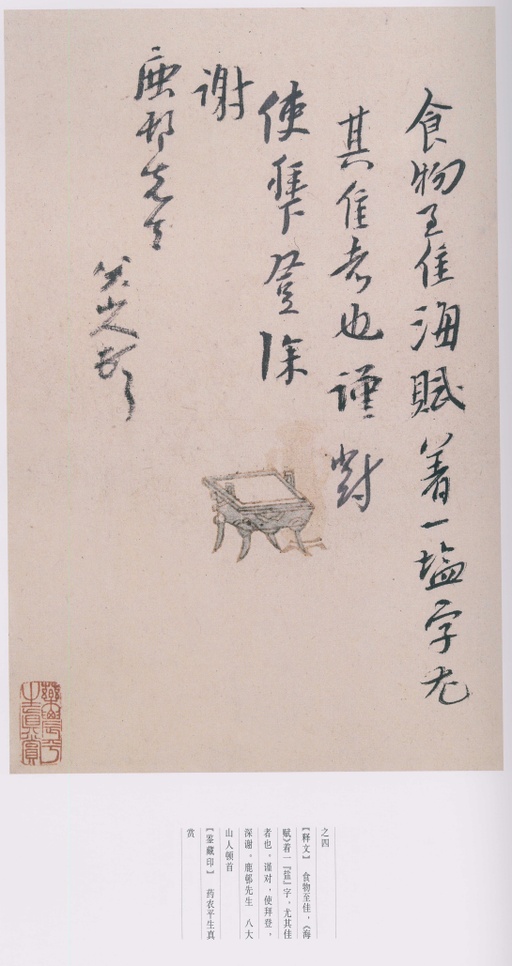 食物至佳海賦着一塩字尤
其佳者也謹對
使拜登深
謝
鹿邨先生
八大山人頓首
藥農平
生真賞
之四
【释文】 食物至佳，《海
赋》着一『盐』字，尤其佳
者也。谨对，使拜登，
深谢。鹿邨先生 八大
山人顿首
【鉴藏印】 药农平生真
赏